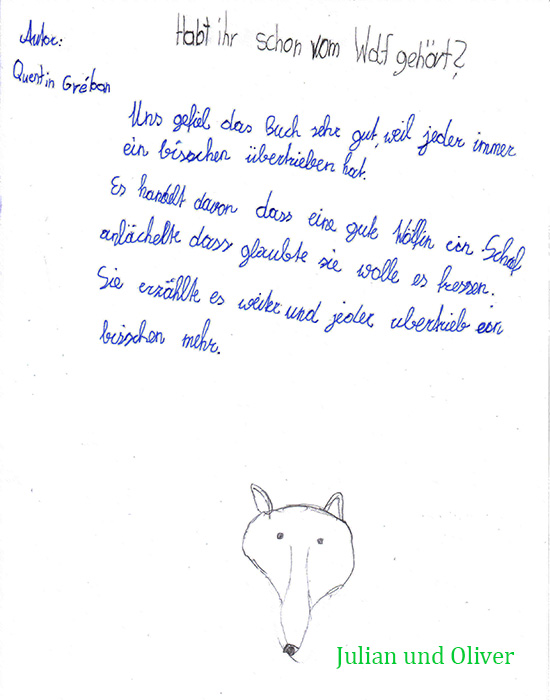 Habt ihr schon vom Wolf gehört?
Autor:
Quentin Gréban
Uns gefiel das Buch sehr gut, weil jeder immer
ein bisschen übertrieben hat.
Es handelt davon dass eine gute Wölfin ein Schaf
anlächelte dass glaubte sie wolle es fressen.
Sie erzählte es weiter und jeder übertrieb ein
bisschen mehr.
Julian und Oliver